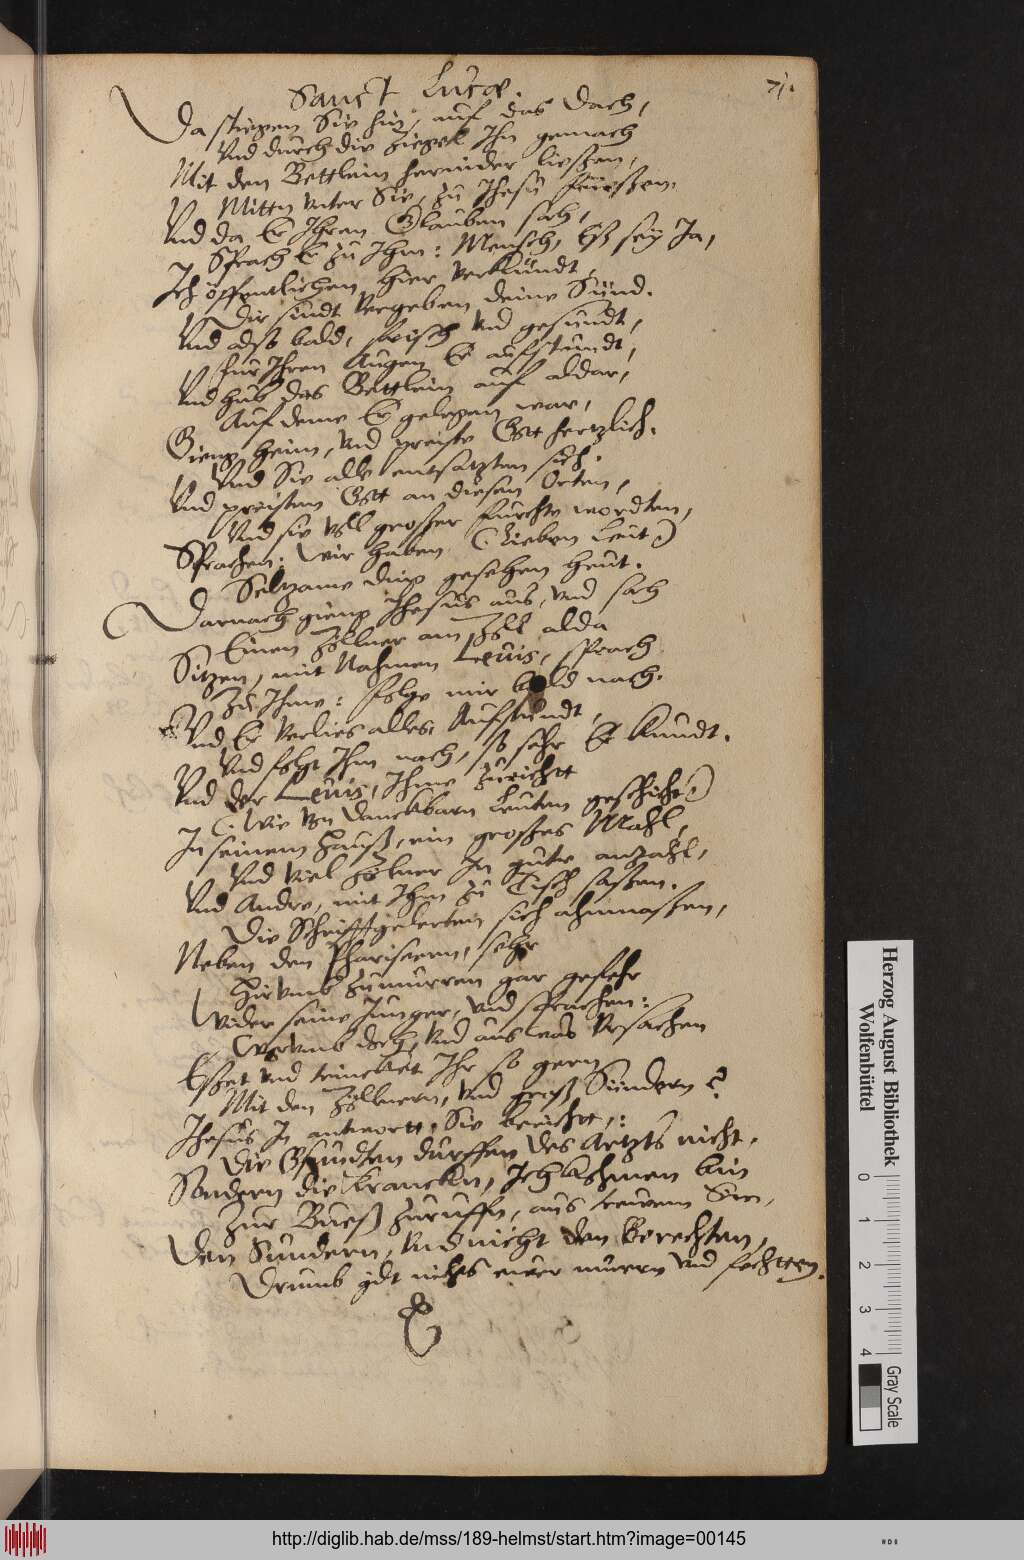 Sanct Lucæ.
71.
Da stiegen Sie hin, auf das Dach,
Vnd durch die Ziegel Ihn gemach
Mit den Bettlein hernider liessen,
Mitten vnter Sie, zu Jhesu füessen.
Vnd da Er Ihren Glauben sach,
Sprach Er zu Ihm: Mensch, Es sey Ja,
Ich öffentlichen hier verkündt,
Dir sindt vergeben deine Sünd.
Vnd also bald, frisch vnd gesundt,
Fur Ihren Augen Er aufstundt,
Vnd hub das Bettlein auf aldar,
Auf deme Er gelegen war,
Gieng heim, vnd preiste Gott hertzlich.
Vnd Sie alle entsatzten sich.
Vnd preisten Gott an diesen Orten,
Vnd sie voll grosser furchte wordten,
Sprachen: Wir haben (Lieben Leut)
Seltzame ding gesehen heut.
Darnach gieng Jhesus aus, vnd sach
Einen Zöllner am Zoll alda
Sitzen, mit Nahmen Levis, sprach
Zu Ihme: folge mir bald nach.
Vnd Er verlies alles, Aufstundt,
Vnd folgt Ihm nach, so sehr Er kundt.
Vnd der Levis, Ihme zuricht
(Wie von danckbarn Leuten geschicht)
In seinem Hauß, ein grosses Mahl,
Vnd viel Zölner In gute anzahl,
Vnd Andre, mit Ihm zu Tisch sassen.
Die Schrifftgelerten sich ahnmassen,
Neben den Phariseern, sehr
Hirvmb zumurren gar gefehr
Wider seine Junger, vnd sprachen:
Worvmb doch, vnd aus was Vrsachen
Esset vnd trincket Ihr so gern
Mit den Zöllnern, vnd groß Sündern?
Jhesus In antwortt, Sie bericht:
Die Gsundten durffen des Artzts nicht.
Sondern die Krancken, Ich kohmen bin
Zur Bueß zuruffn, aus treuem Sin,
Den Sündern, vnd nicht den Gerechten,
Drumb gilt nichts euer murrn vnd fechtten.
Herzog August Bibliothek
Wolfenbüttel
0 1 2 3 4
Gray Scale
http://diglib.hab.de/mss/189-helmst/start.htm?image=00145